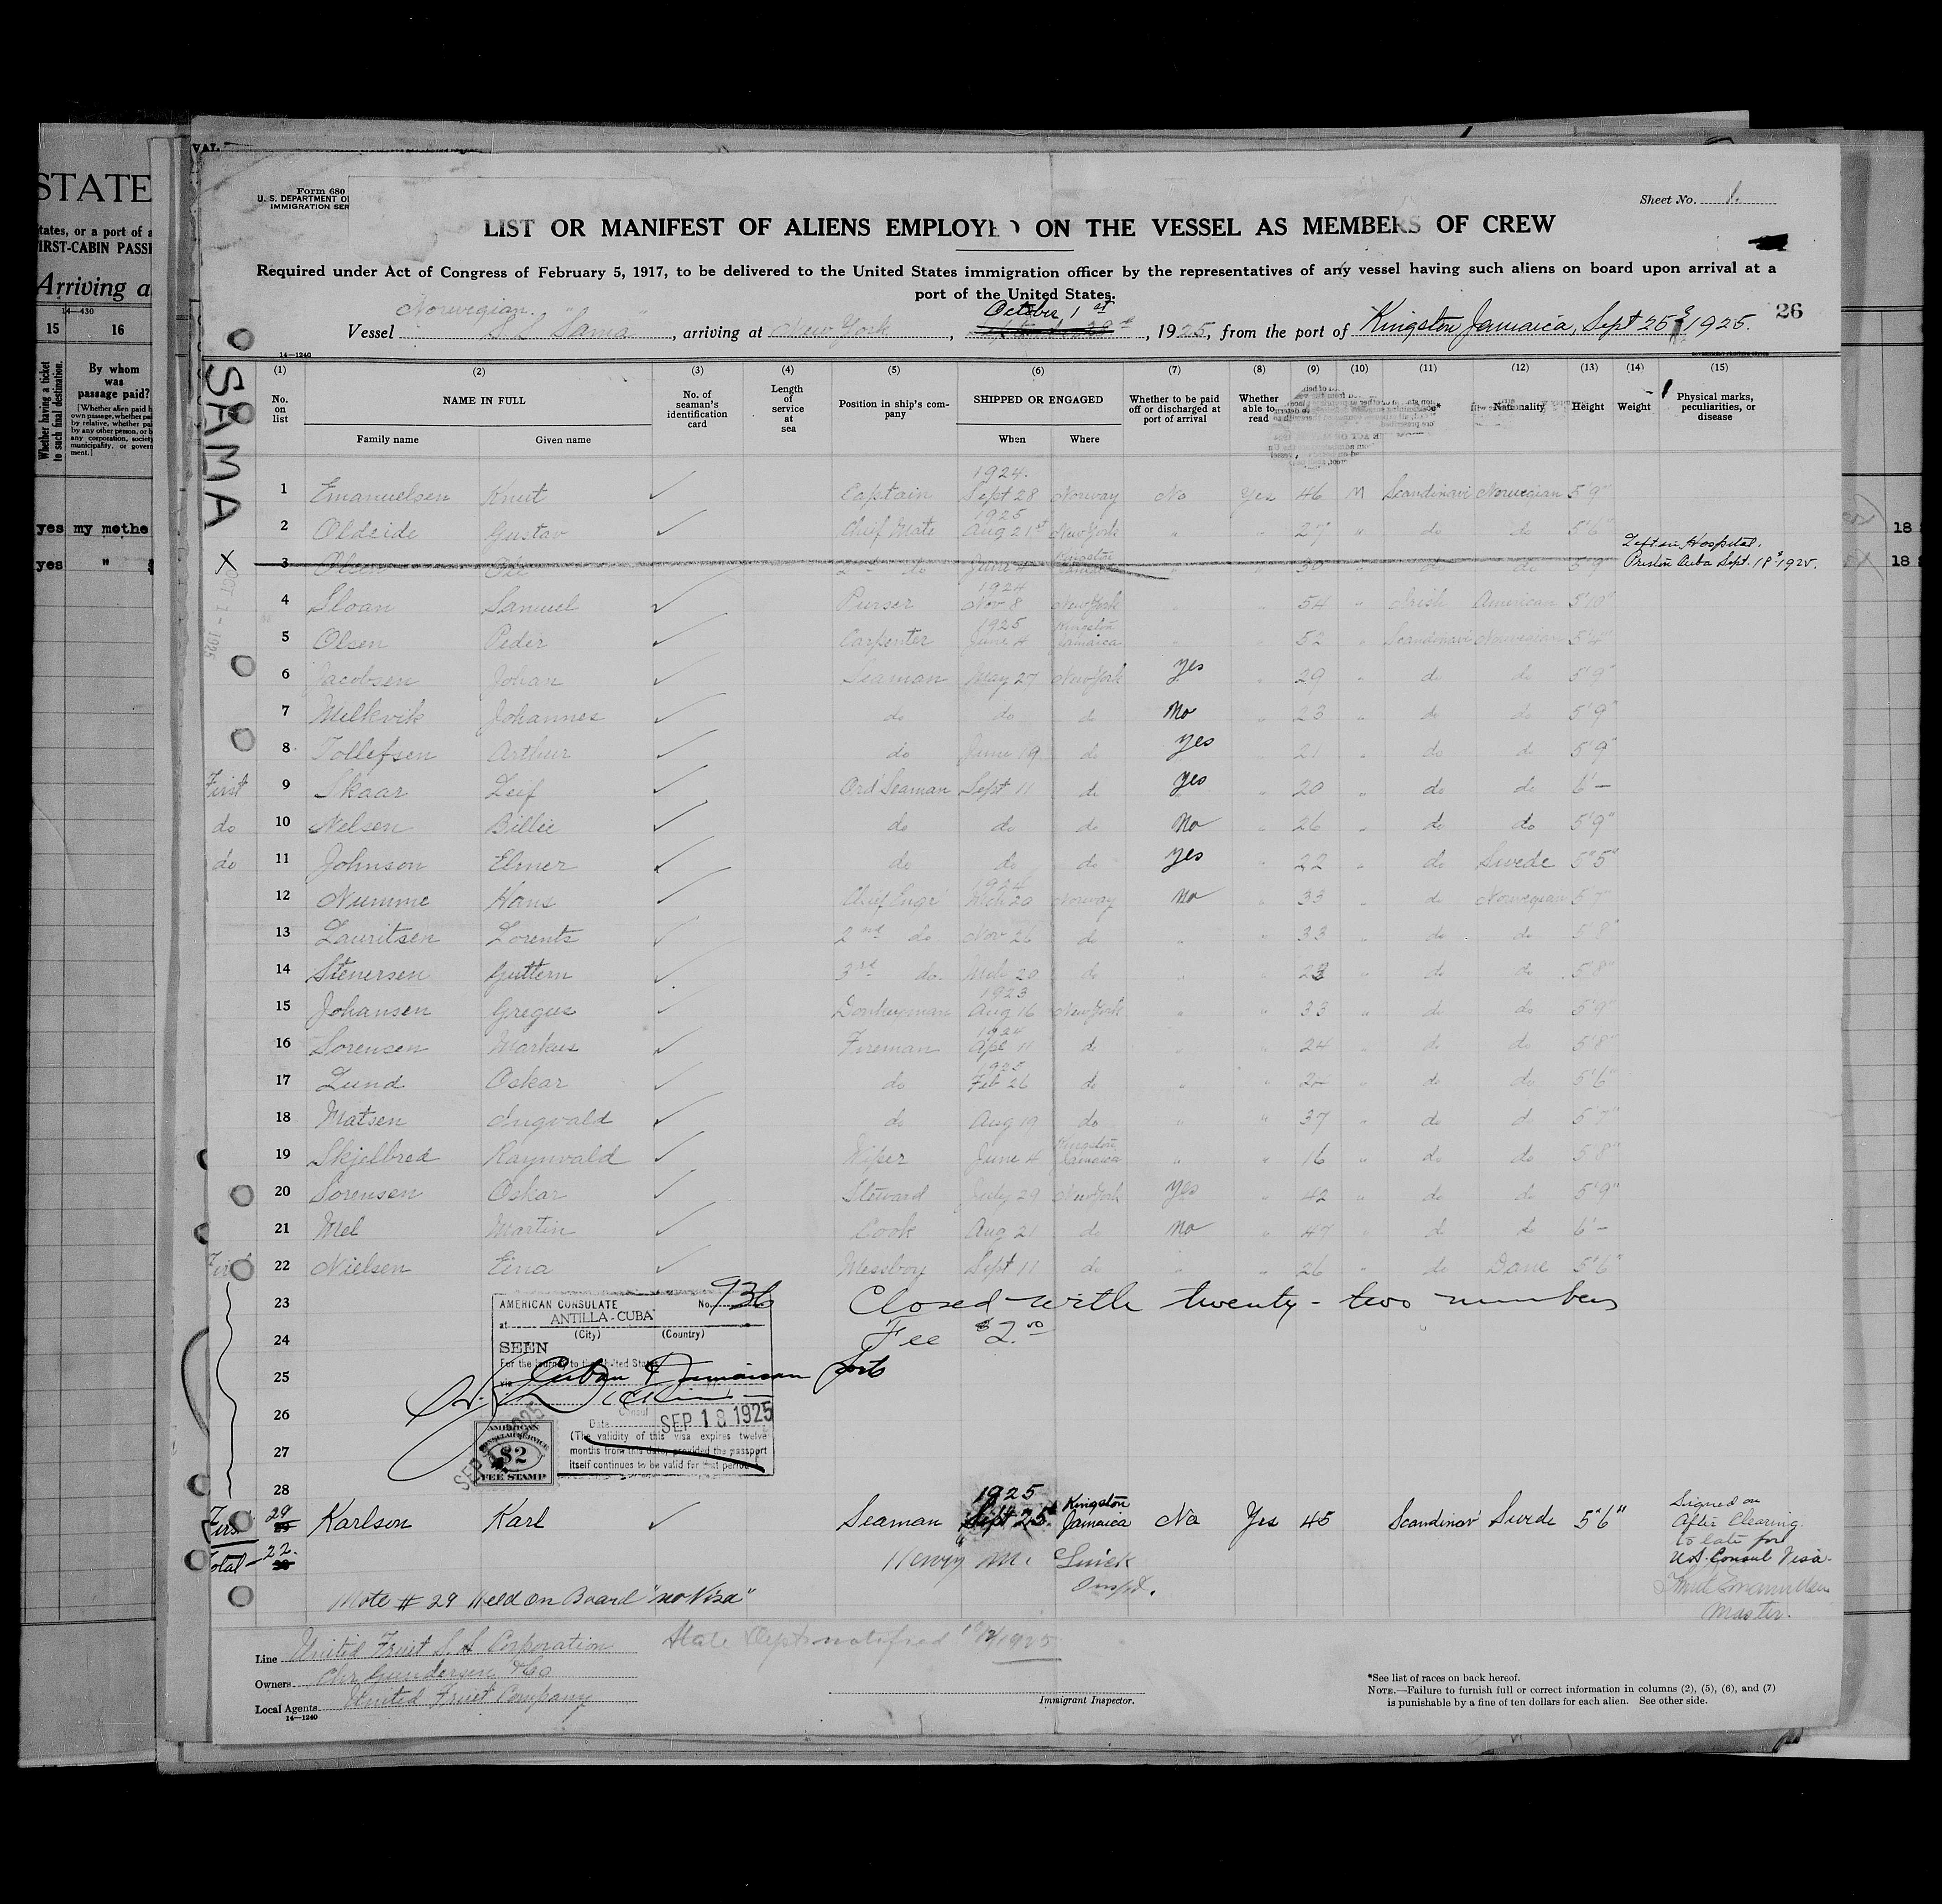 VAL
STATE
tates, or a port of a
IRST-CABIN PASSE
Arriving a
14—430
15 16
Whether having a ticket to such final destination.
By whom was passage paid?
yes my mothe
yes "
18
18
Form 680
U. S. DEPARTMENT OF
IMMIGRATION SER
Sheet No. 1.
LIST OR MANIFEST OF ALIENS EMPLOYED ON THE VESSEL AS MEMBERS OF CREW
Required under Act of Congress of February 5, 1917, to be delivered to the United States immigration officer by the representatives of any vessel having such aliens on board upon arrival at a
port of the United States.
Norwegian. October, 1st
Vessel S.S. "Sama", arriving at New York, 1925, from the port of Kingston Jamaica, Sept 25th 1925. 26
14—1240
SAMA
OCT 1 - 1925
(1) (2) (3) (4) (5) (6) (7) (8) (9) (10) (11) (12) (13) (14) (15)
No. on list NAME IN FULL No. of seaman's identification card Length of service at sea Position in ship's company SHIPPED OR ENGAGED Whether to be paid off or discharged at port of arrival Whether able to read Nationality Height Weight Physical marks, peculiarities, or disease
Family name Given name When Where
1 Emanuelsen Knut ✓ Captain 1924. Sept 28 Norway No Yes 46 M Scandinavi Norwegian 5'9"
2 Oldeide Gustav ✓ Chief Mate 1925 Aug 21st New York " " 27 " do do 5'6"
3 Olsen Ole 2nd do June 4 Kingston Jamaica " " 30 " do do 5'9" Left in Hospital. Preston Cuba Sept. 18th 1925.
4 Sloan Samuel ✓ Purser 1924 Nov 8 New York " " 54 " Irish American 5'10"
5 Olsen Peder ✓ Carpenter 1925 June 4 Kingston Jamaica " " 52 " Scandinavi Norwegian 5'4"
6 Jacobsen Johan ✓ Seaman May 27 New York Yes " 29 " do do 5'9"
7 Melkvik Johannes ✓ do do do No " 23 " do do 5'9"
8 Tollefsen Arthur ✓ do June 19 do Yes " 21 " do do 5'9"
First 9 Skaar Leif ✓ Ord Seaman Sept 11 do Yes " 20 " do do 6'—
do 10 Nelsen Billie ✓ do do do No " 26 " do do 5'9"
do 11 Johnson Elmer ✓ do do do Yes " 22 " do Swede 5'5"
12 Numme Hans ✓ Chief Engr 1924 Mch 20 Norway No " 33 " do Norwegian 5'7"
13 Lauritsen Lorents ✓ 2nd do Nov 26 do " " 33 " do do 5'8"
14 Stenersen Guttern ✓ 3rd do Mch 20 do " " 23 " do do 5'8"
15 Johansen Gregus ✓ Donkeyman 1923 Aug 16 New York " " 33 " do do 5'9"
16 Sorensen Markus ✓ Fireman 1924 Apl 11 do " " 24 " do do 5'8"
17 Lund Oskar ✓ do 1925 Feb 26 do " " " do do 5'6"
18 Matsen Ingvald ✓ do Aug 19 do " " 37 " do do 5'7"
19 Skjelbred Raynvald ✓ Wiper June 4 Kingston Jamaica " " 16 " do do 5'8"
20 Sorensen Oskar ✓ Steward July 29 New York Yes " 42 " do do 5'9"
21 Mel Martin ✓ Cook Aug 21 do No " 47 " do do 6'—
First 22 Nielsen Eina ✓ Messboy Sept 11 do " " 26 " do Dane 5'6"
23 Closed with twenty-two numbers
24 Fee $2.00
25
26
27
28
AMERICAN CONSULATE No. 936
at ANTILLA-CUBA
(City) (Country)
SEEN
For the journey to the United States
via Cuban & Jamaican Ports
Consul
Date SEP 18 1925
(The validity of this visa expires twelve
months from this date, provided the passport
itself continues to be valid for that period)
AMERICAN
CONSULAR SERVICE
$2
FEE STAMP
First 29 Karlson Karl ✓ Seaman 1925 Sept 25th Kingston Jamaica No Yes 45 Scandinav Swede 5'6" Signed on After Clearing. to late for U.S. Consul Visa.
Total—22. Henry M. Insptr.
Knut Emanuelsen
Master.
Note # 29 Held on Board "no Visa"
State Dept notified 10/2/1925
Line United Fruit S.S Corporation
Owners Chr. Gundersen & Co
Local Agents United Fruit Company
14—1240
Immigrant Inspector.
*See list of races on back hereof.
NOTE.—Failure to furnish full or correct information in columns (2), (5), (6), and (7)
is punishable by a fine of ten dollars for each alien. See other side.